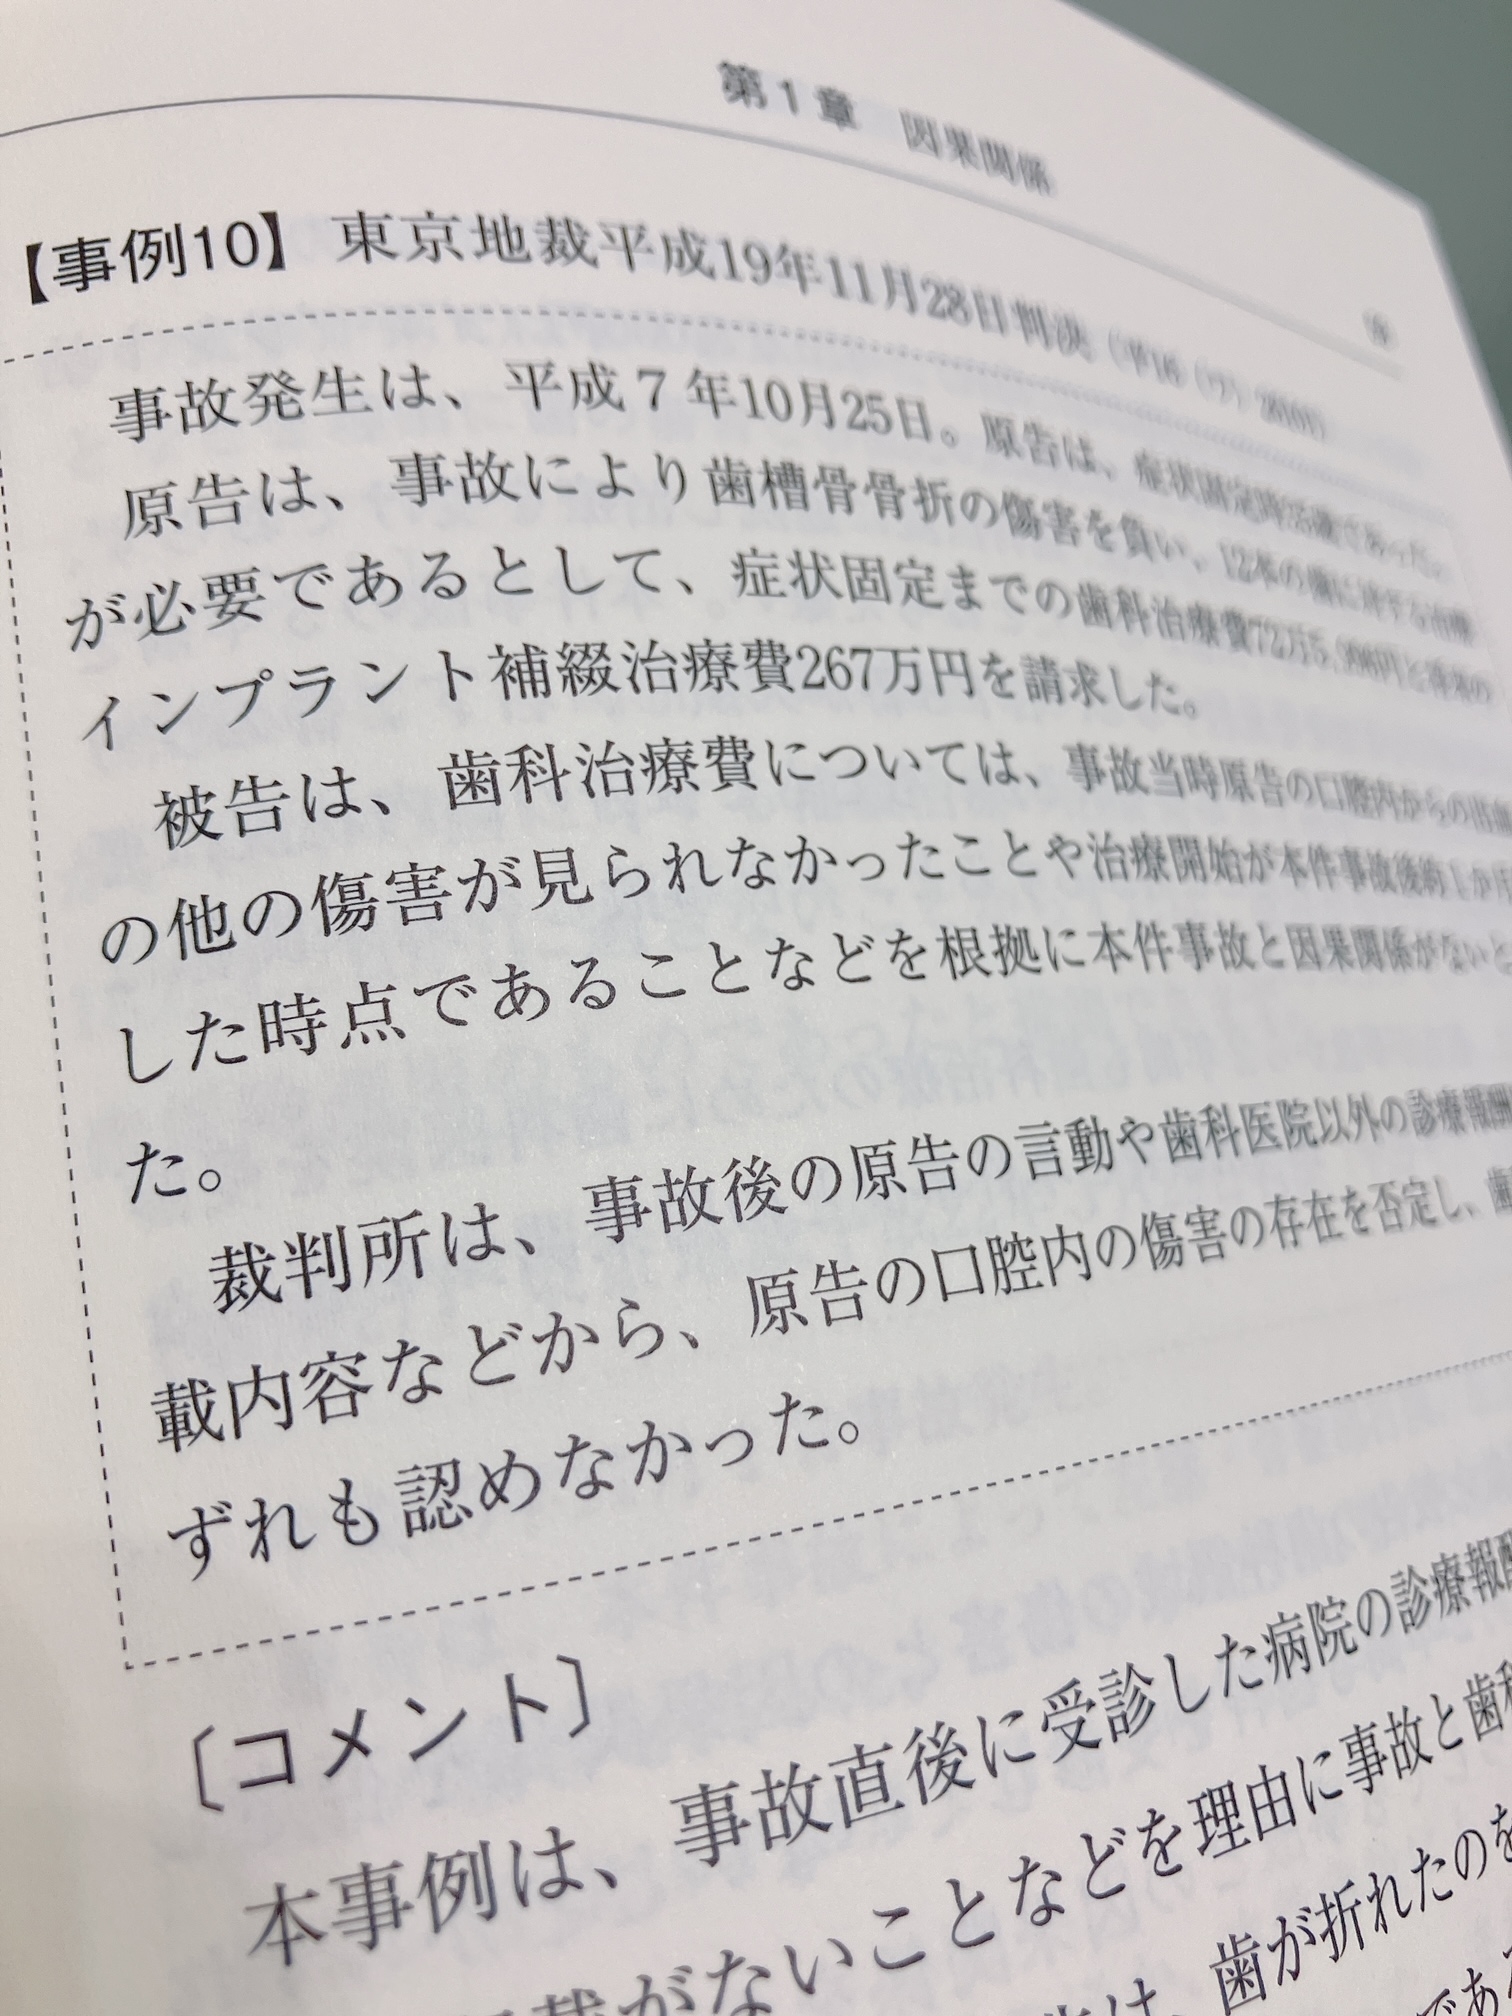 第1章 因果関係
【事例10】 東京地裁平成19年11月28日判決（平16（ワ）
事故発生は、平成7年10月25日。原告は、症状固定時活躍であった。
原告は、事故により歯槽骨骨折の傷害を負い、12本の歯に対する治療
が必要であるとして、症状固定までの歯科治療費72万5,996円と将来の
インプラント補綴治療費267万円を請求した。
被告は、歯科治療費については、事故当時原告の口腔内からの出血
の他の傷害が見られなかったことや治療開始が本件事故後約1か月
した時点であることなどを根拠に本件事故と因果関係がないと
た。
裁判所は、事故後の原告の言動や歯科医院以外の診療報酬
載内容などから、原告の口腔内の傷害の存在を否定し、歯
ずれも認めなかった。
〔コメント〕
本事例は、事故直後に受診した病院の診療報酬
載がないことなどを理由に事故と歯科
は、歯が折れたのを
であ